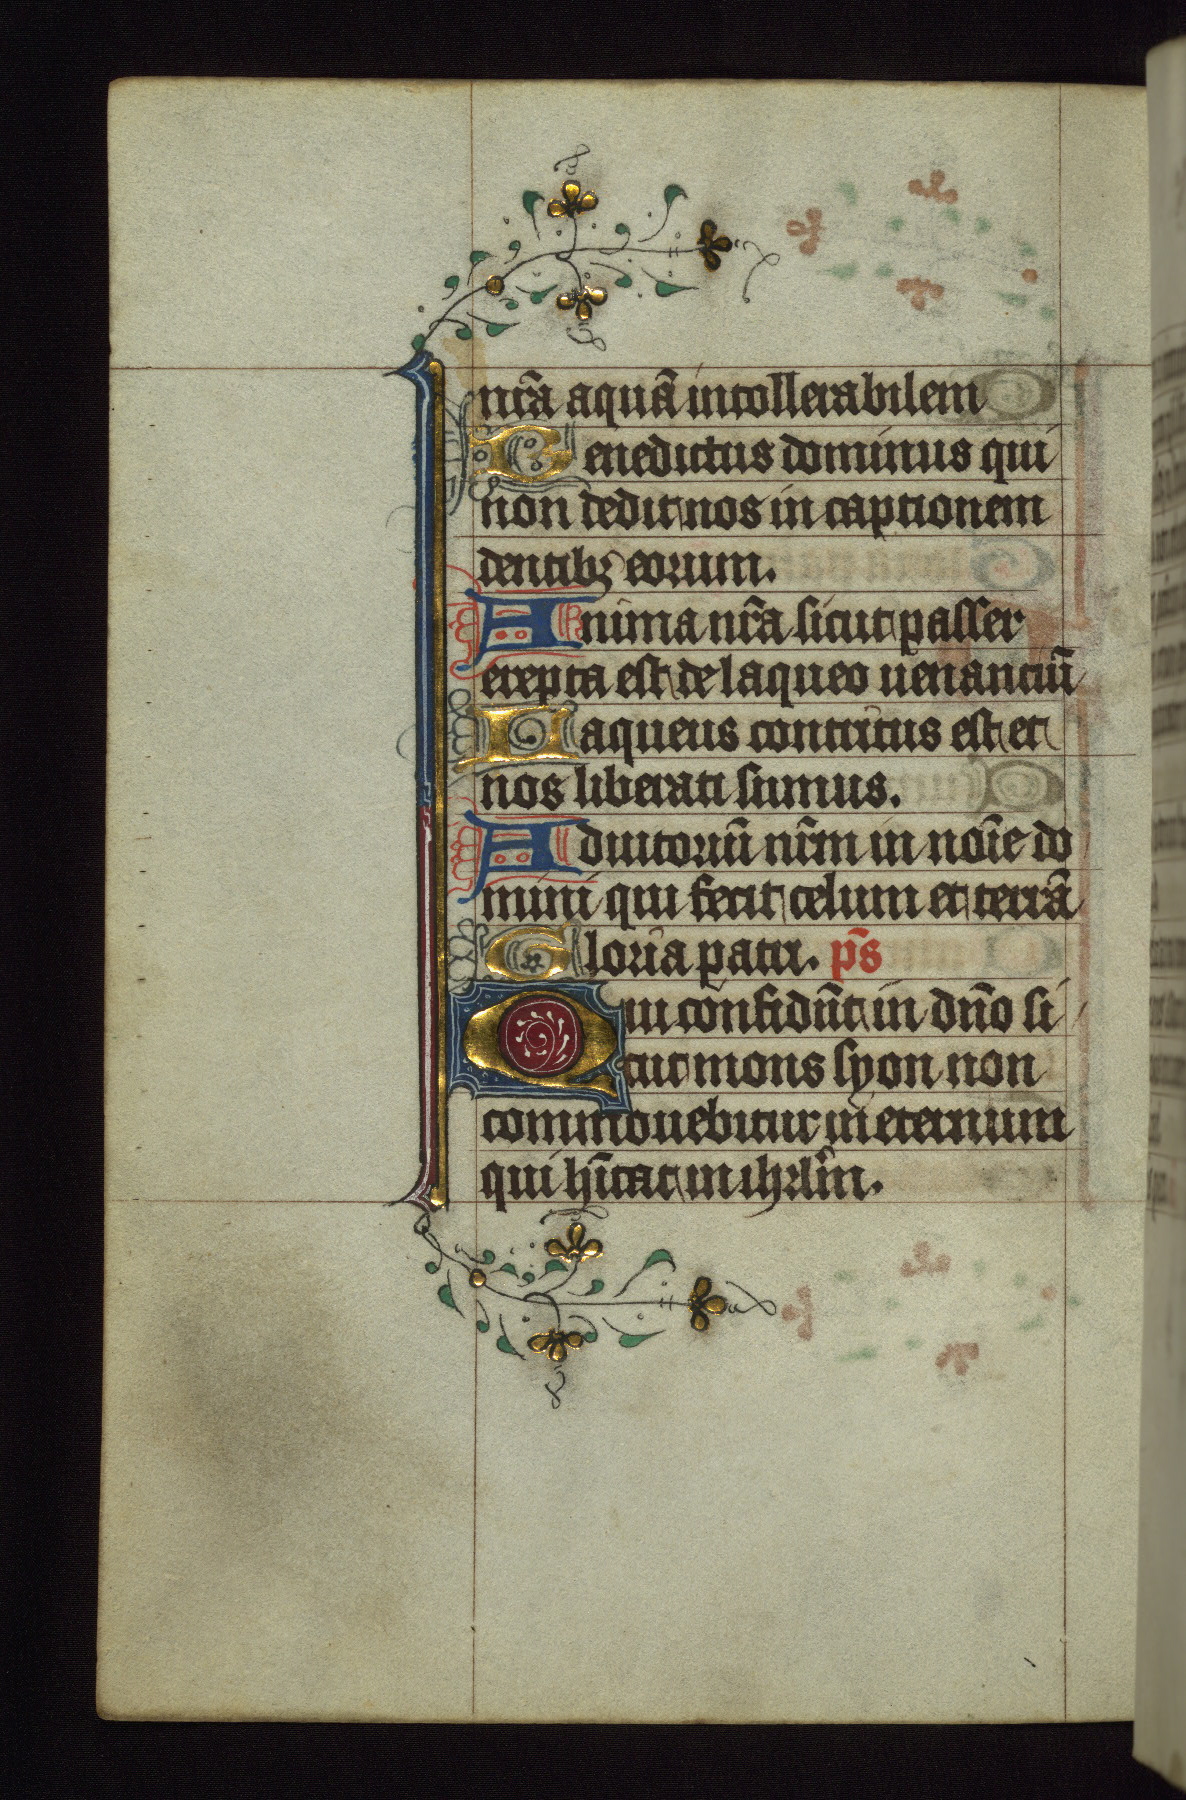 nr̃a aquã intollerabilem
Benedictus dominus qui
non dedit nos in captionem
dentibꝫ eorum.
Anima nr̃a sicut passer
erepta est de laqueo uenanciũ
Laqueus contritus est et
nos liberati sumus.
Adiutoriũ nr̃m in noĩe do
mini qui fecit celum et terrã
Gloria patri. ps̃
Qui confidũt in dño si
cut mons syon non
commouebitur in eternum
qui hĩtat in ihrl̃m.